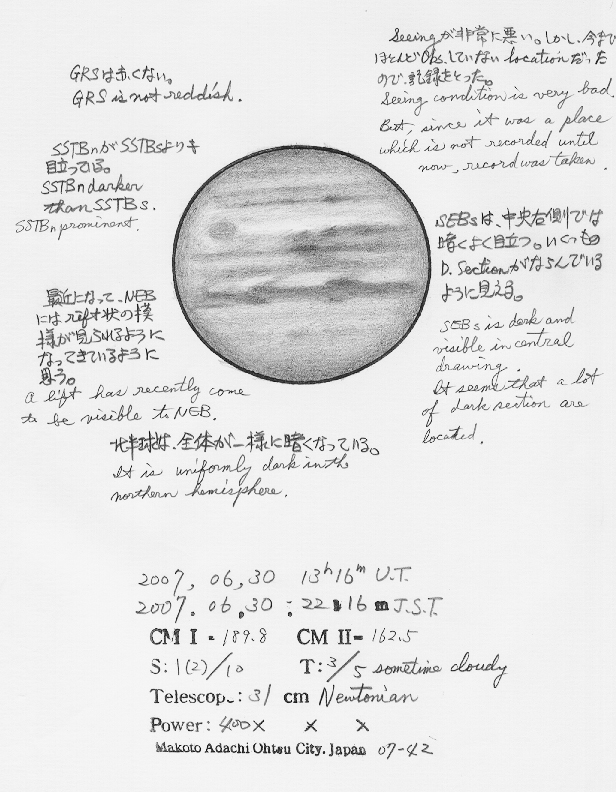 Seeingが非常に悪い。しかし、今まで
ほとんどObs.していないlocationだった
ので、記録をとった。
Seeing condition is very bad.
But, since it was a place
which is not recorded until
now, record was taken.
GRSは赤くない。
GRS is not reddish.
SSTBnがSSTBsよりも
目立っている。
SSTBn darker
than SSTBs.
SSTBn prominent.
SEBsは、中央右側では
暗くよく目立つ。いくつもの
D. Sectionがならんでいる
ように見える。
SEBs is dark and
visible in central
drawing.
It seems that a lot
of dark section are
located.
最近になって、NEB
にはrift状の模
様が見られるように
なってきているように
思う。
A lift has recently come
to be visible to NEB.
北半球は、全体が一様に暗くなっている。
It is uniformly dark in the
northern hemisphere.
2007, 06, 30 13h16m U.T.
2007. 06. 30 : 22 16 m J.S.T.
CM I = 189.8 CM II= 162.5
S: 1(2)/10 T: 3/5 sometime cloudy
Telescop.: 31 cm Newtonian
Power: 400× × ×
Makoto Adachi Ohtsu City. Japan 07-42